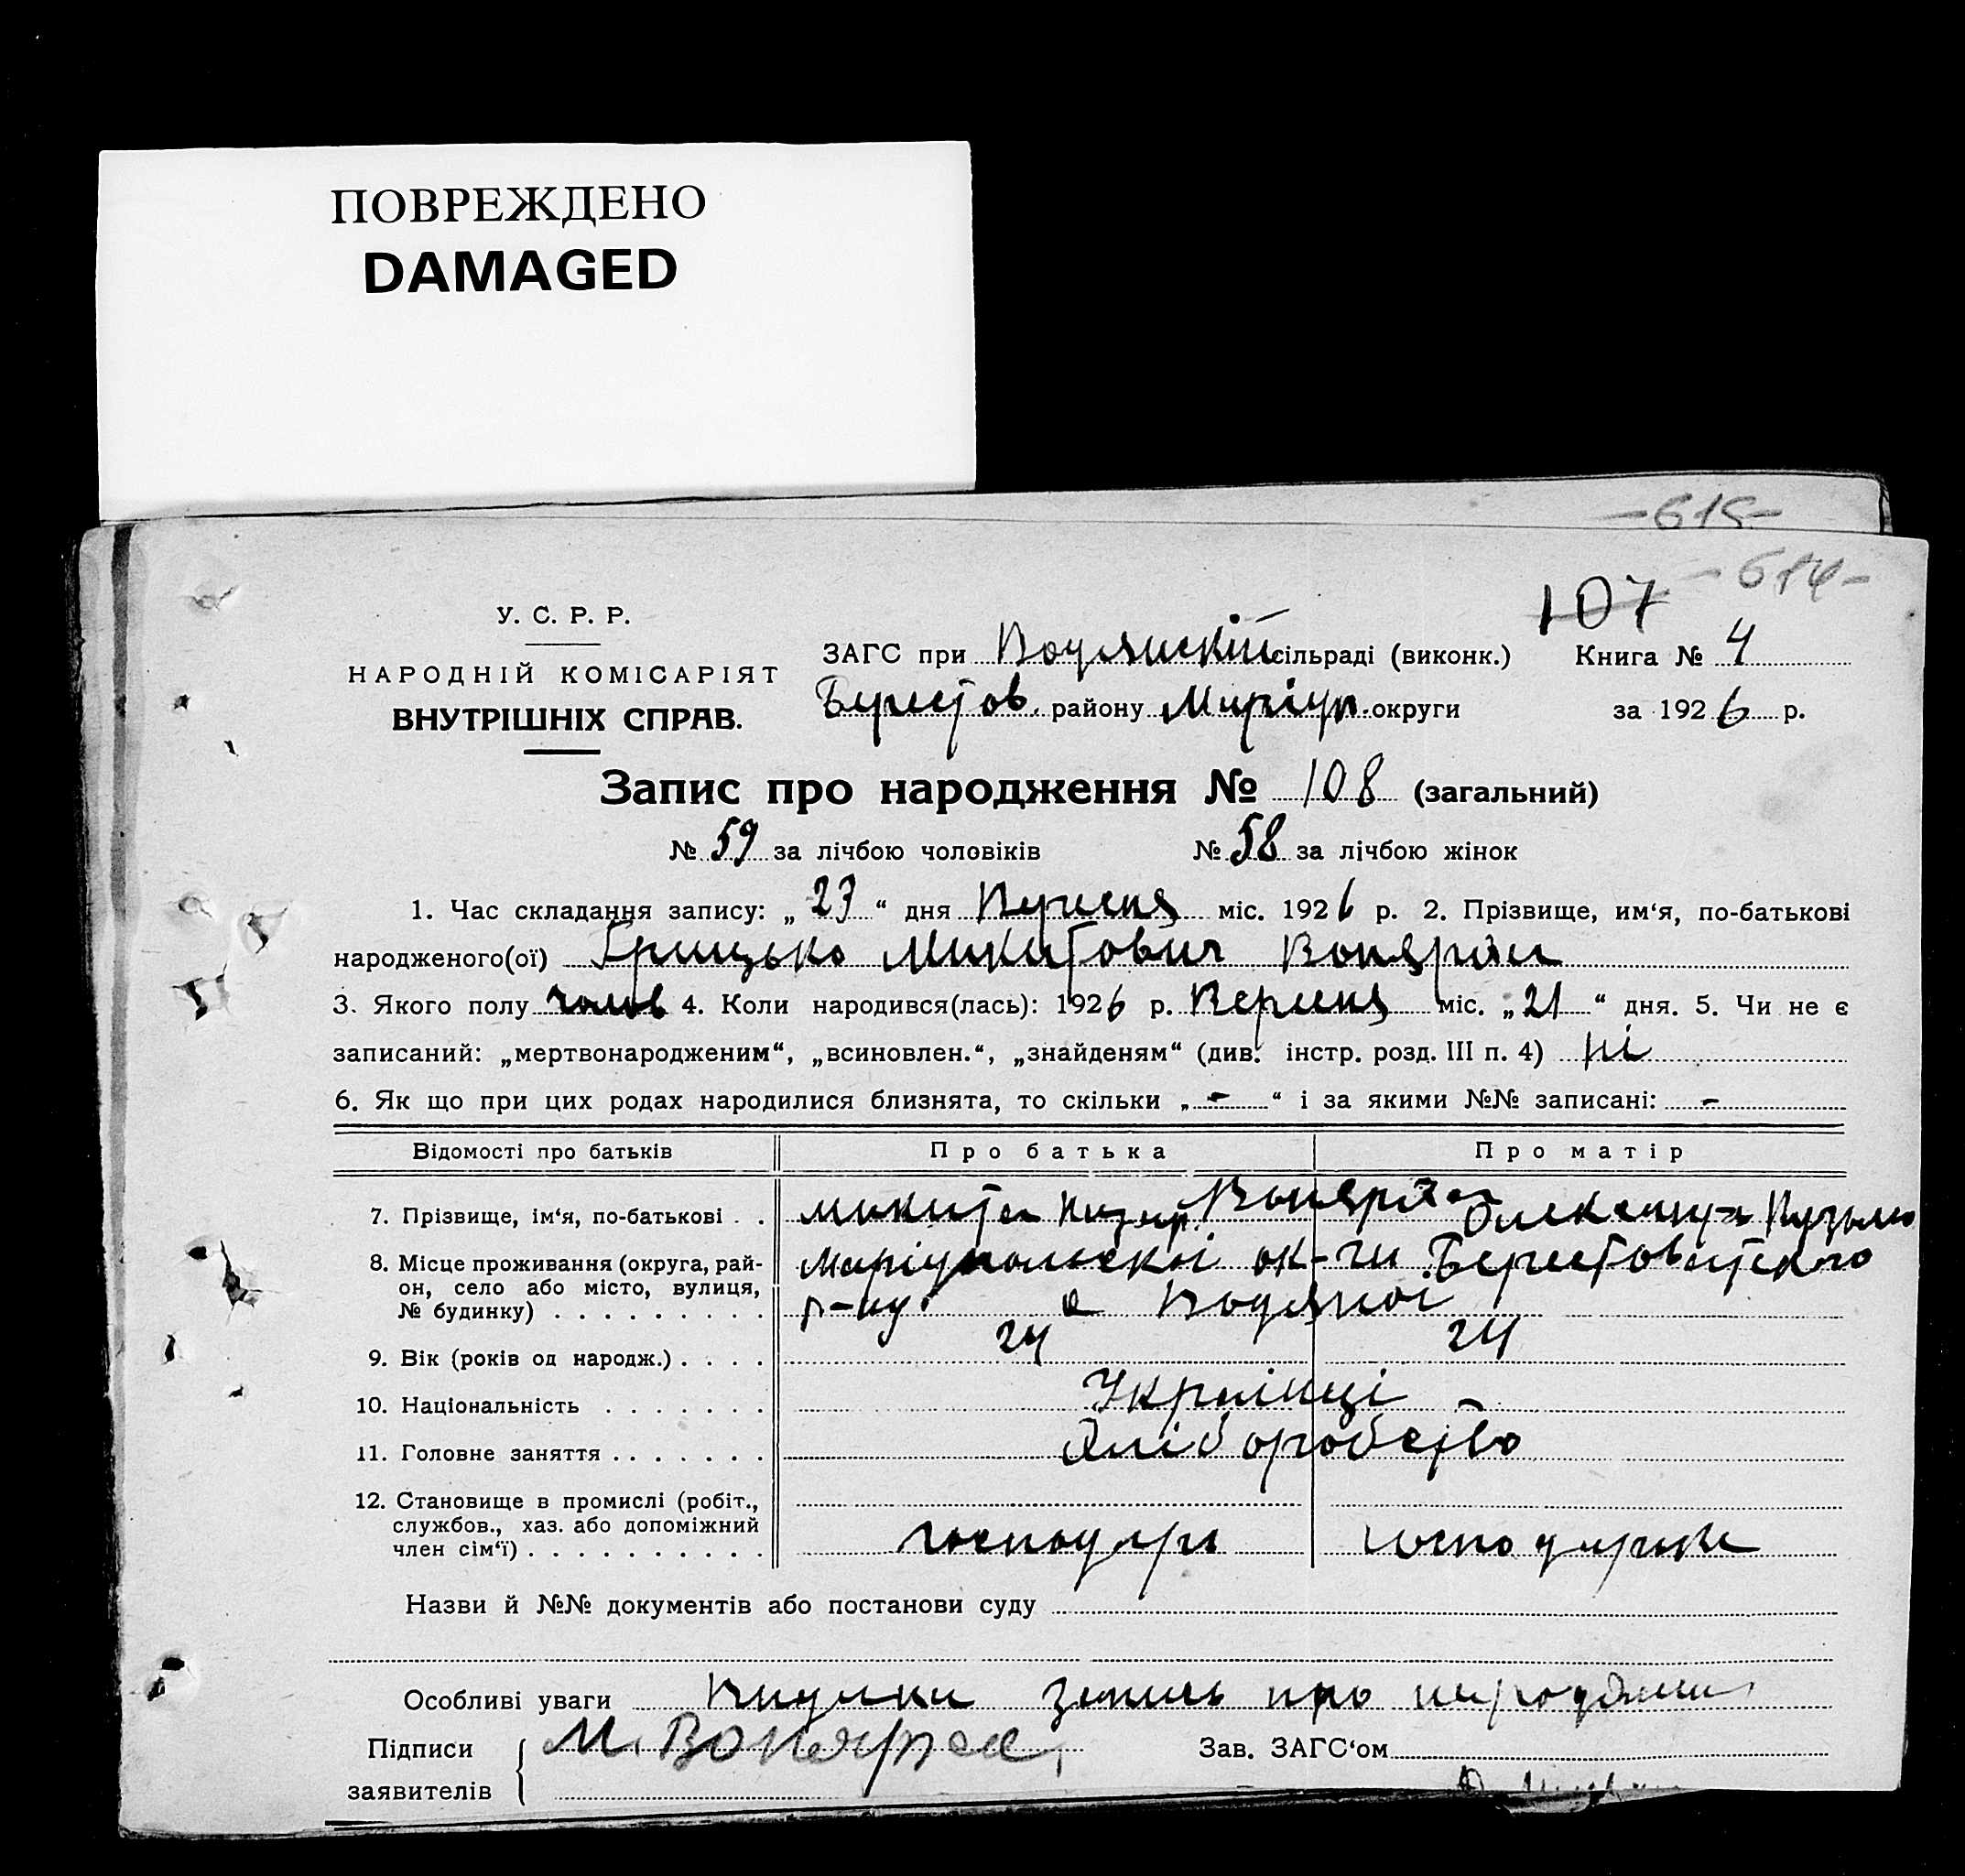 ПОВРЕЖДЕНО
DAMAGED
-615-
-614-
107
У. С. Р. Р.
НАРОДНІЙ КОМІСАРІЯТ
ВНУТРІШНІХ СПРАВ.
ЗАГС при Водянскій сільраді (виконк.) Книга № 4
Берестов. району Маріуп. округи за 1926 р.
Запис про народження № 108 (загальний)
№ 59 за лічбою чоловіків № 58 за лічбою жінок
1. Час складання запису: „ 23 “ дня Вересня міс. 1926 р. 2. Прізвище, им‘я, по-батькові
народженого(ої) Грицько Микитович
3. Якого полу чолов 4. Коли народився(лась): 1926 р. Вересня міс. „ 21 “ дня. 5. Чи не є
записаний: „мертвонародженим“, „всиновлен.“, „знайденям“ (див. інстр. розд. III п. 4) ні
6. Як що при цих родах народилися близнята, то скільки „ - “ і за якими №№ записані: -
Відомості про батьків Про батька Про матір
7. Прізвище, ім‘я, по-батькові . . Микита
8. Місце проживання (округа, рай- Маріупольскоі ок-ги
он, село або місто, вулиця, р-ну Водяноі
№ будинку) . . . . . . . . .
9. Вік (років од народж.) . . . . 24 24
10. Національність . . . . . . . Украінці
11. Головне заняття . . . . . . . Хліборобство
12. Становище в промислі (робіт.,
службов., хаз. або допоміжний
член сім‘ї) . . . . . . . . . . господарь господарка
Назви й №№ документів або постанови суду
Особливі уваги про
Підписи М.
заявителів
Зав. ЗАГС‘ом